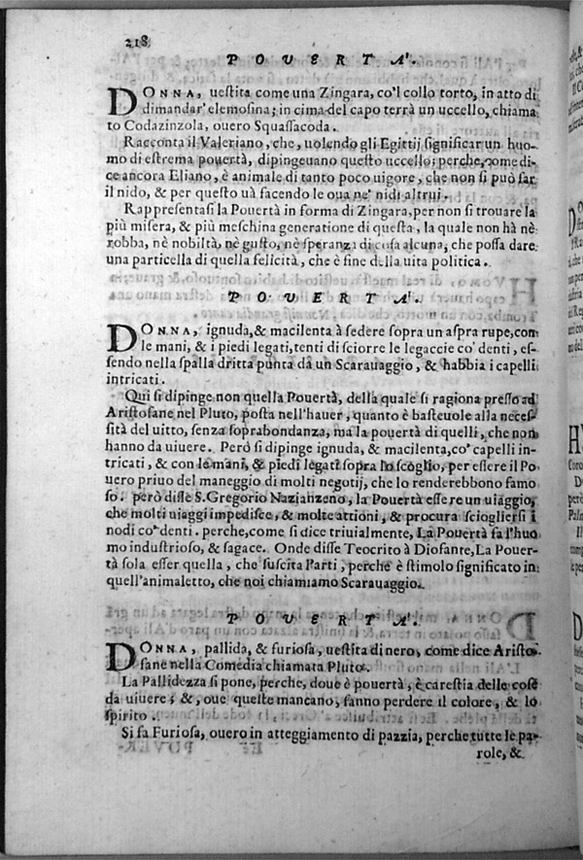 218
POVERTA'.
DONNA, uestita come una Zingara, co'l collo torto, in atto di
dimandar' elemosina; in cima del capo terrà un uccello, chiama
to Codazinzola, ouero Squassacoda.
Racconta il Valeriano, che, uolendo gli Egittij significar un huo-
mo di estrema pouertà, dipingeuano questo uccello; perche, come di-
ce ancora Eliano, è animale di tanto poco uigore, che non si può far
il nido, & per questo uà facendo le oua ne' nidi altrui.
Rappresentasi la Pouertà in forma di Zingara, per non si trouare la
più misera, & più meschina generatione di questa, la quale non hà nè
robba, nè nobiltà, nè gusto, nè speranza di cosa alcuna, che possa dare
una particella di quella felicità, che è fine della uita politica.
POVERTA'.
DONNA, ignuda, & macilenta à sedere sopra un aspra rupe, con
le mani, & i piedi legati, tenti di sciorre le legaccie co' denti, es-
sendo nella spalla dritta punta da un Scarauaggio, & habbia i capelli
intricati.
Qui si dipinge non quella Pouertà, della quale si ragiona presso ad
Aristofane nel Pluto, posta nell'hauer, quanto è basteuole alla neces-
sità del uitto, senza soprabondanza, ma la pouertà di quelli, che non
hanno da uiuere. Però si dipinge ignuda, & macilenta, co' capelli in-
tricati, & con le mani, & piedi legati sopra lo scoglio, per essere il Po
uero priuo del maneggio di molti negotij, che lo renderebbono famo
so. però disse S. Gregorio Nazianzeno, la Pouertà essere un uiaggio,
che molti uiaggi impedisce, & molte attioni, & procura sciogliersi i
nodi co' denti. perche, come si dice triuialmente, La Pouertà fa l'huo
mo industrioso, & sagace. Onde disse Teocrito à Diofante, La Pouer-
tà sola esser quella, che suscita l'arti, perche è stimolo significato in
quell'animaletto, che noi chiamiamo Scarauaggio.
POVERTA'.
DONNA, pallida, & furiosa, uestita di nero, come dice Aristo-
fane nella Comedia chiamata Pluto.
La Pallidezza si pone, perche, doue è pouertà, è carestia delle cose
da uiuere; &, oue queste mancano, fanno perdere il colore, & lo
spirito.
Si fa Furiosa, ouero in atteggiamento di pazzia, perche tutte le pa-
role, &